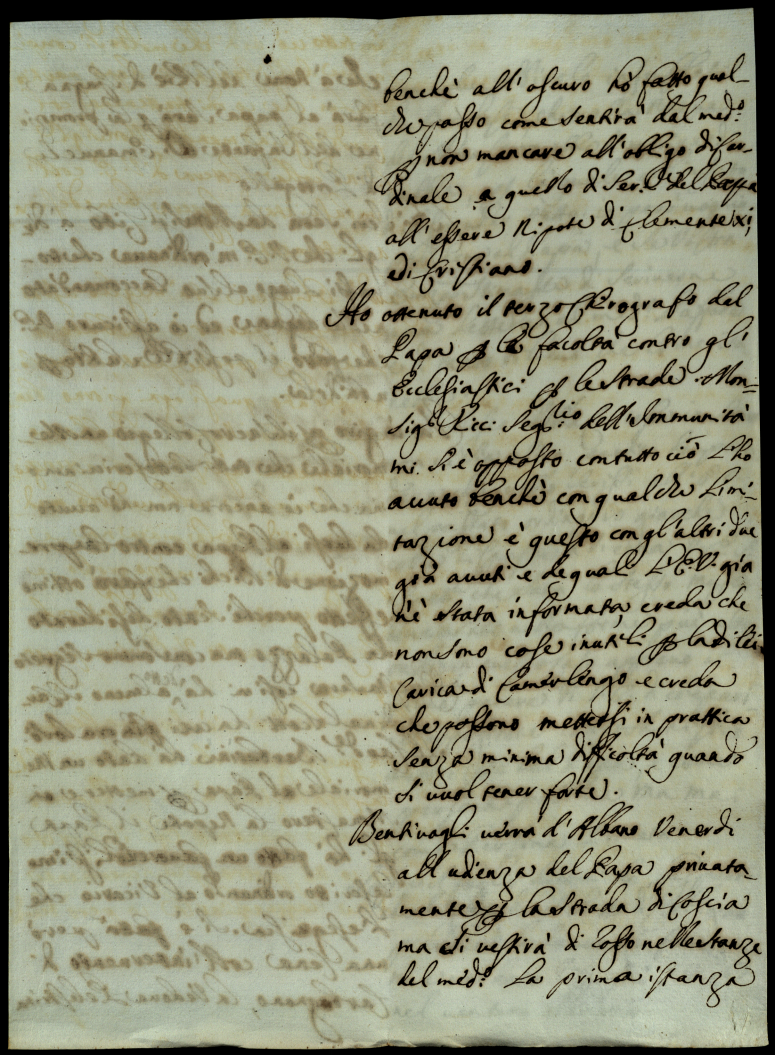 benchè all'oscuro hò fatto qual-
che passo come sentirà dal med.º
p non mancare all'obligo di Car-
dinale a questo di Ser.
all'essere Nipote di Clemente XI,
e di Cristiano.
Ho ottenuto il terzo Chirografo del
Papa p le facoltà contro gl'
Ecclesiastici p le strade. Mon-
sig.r Ricci Seg.rio dell'Immunità
mi si è opposto con tutto ciò l'ho
avuto benchè con qualche limi-
tazione è questo con gl'altri due
già avuti e de quali l'E.V. già
n'è stata informata, creda che
non sono cose inutili p la di lei
Carica di Camerlengo e creda
che possono mettersi in prattica
senza minima difficoltà quando
si vuol tener forte.
Bentivogli verrà d'Albano Venerdì
all'udienza del Papa privata-
mente p la strada di Coscia
ma si vestirà di rosso nelle stanze
del med.º La prima istanza